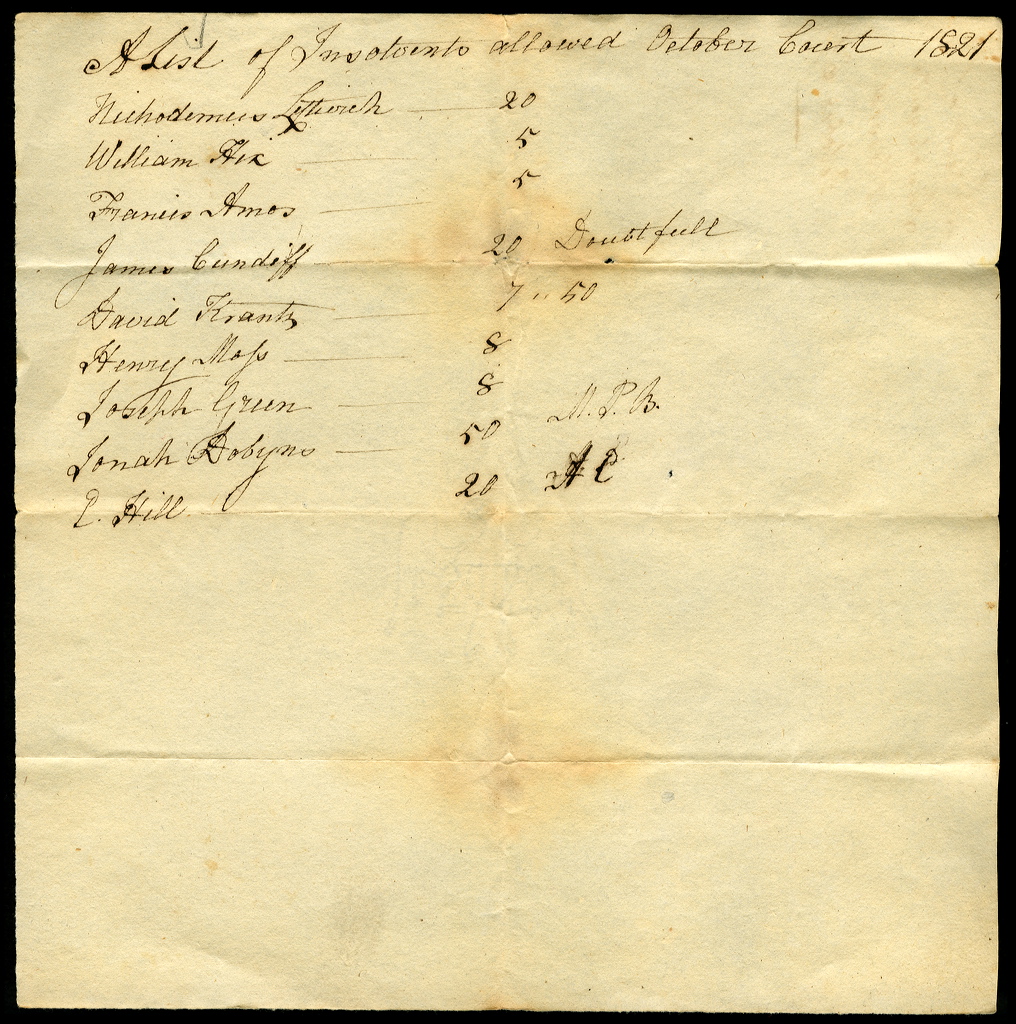 A List of Insolvents allowed October Court 1821
Nichodemus Leftwich 20
William Hix 5
Francis Amos 5
James Cundiff 20 Doubtfull
David Krantz 7 " 50
Henry Moss 8
Joseph Green 8
Jonah Dobyns 50 M. P. B.
E. Hill 20